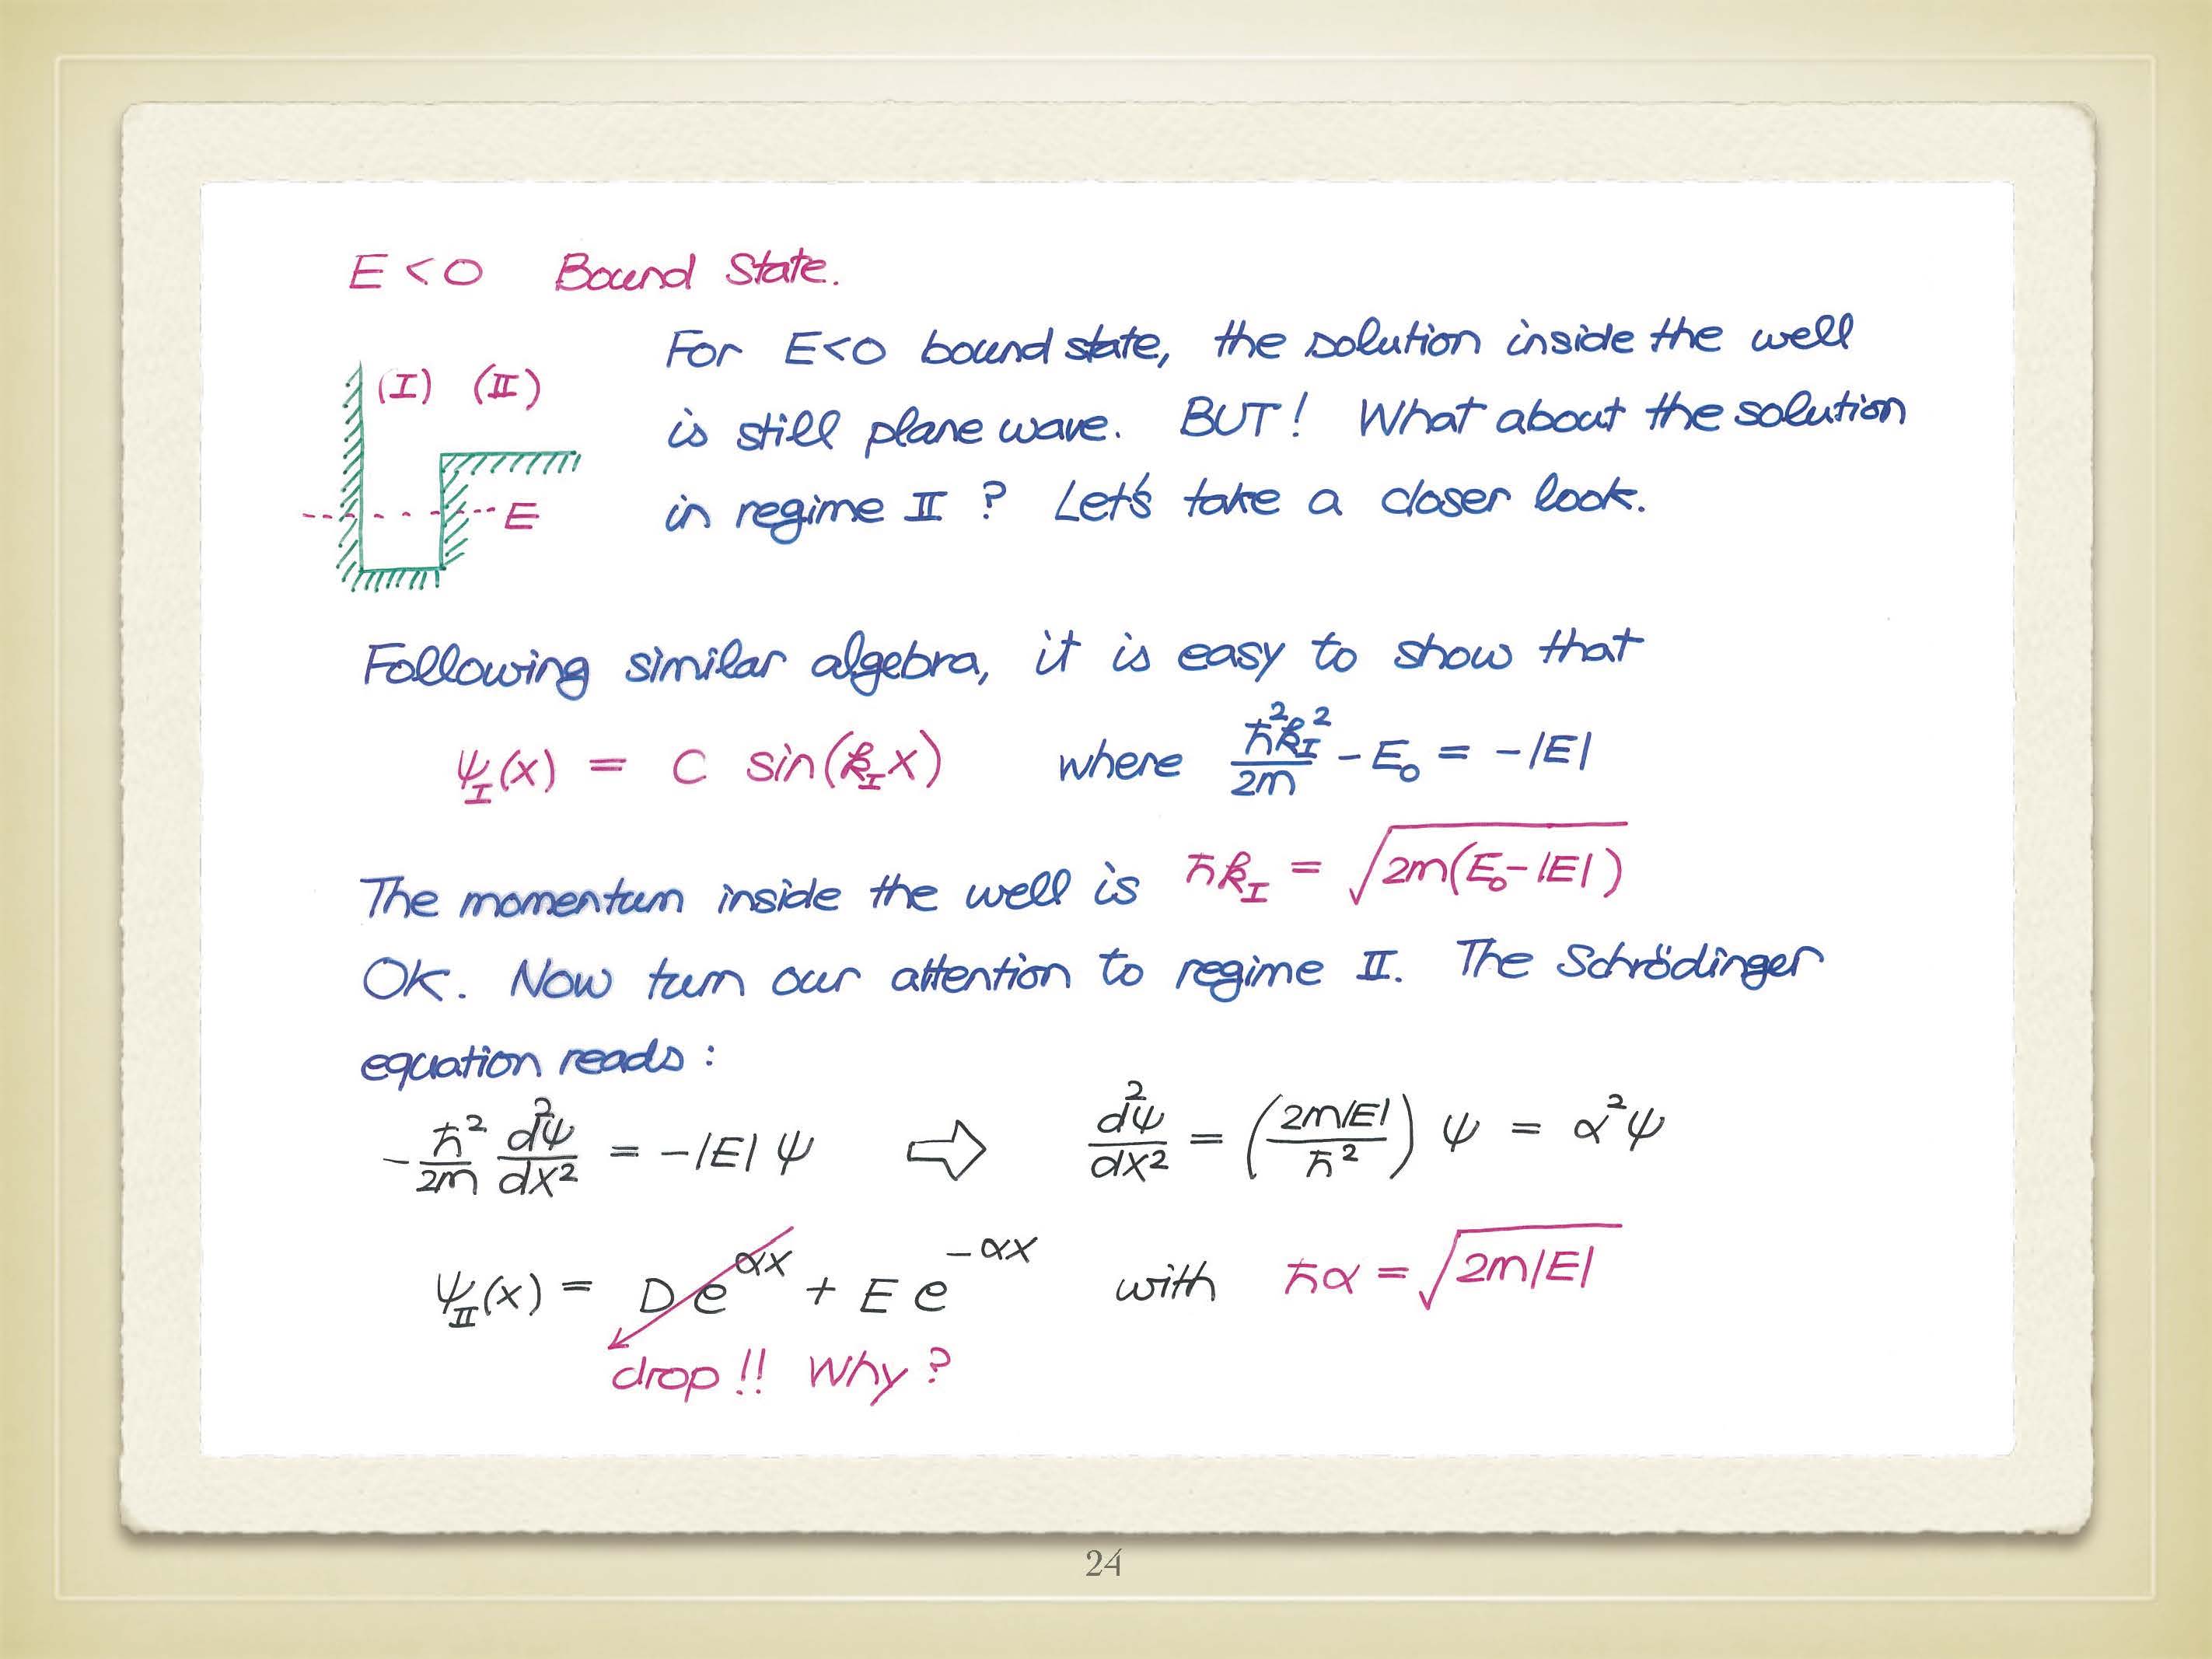 E < 0 Bound State.
For E<0 bound state, the solution inside the well
(I) (II)
is still plane wave. BUT! What about the solution
in regime II ? Let's take a closer look.
E
Following similar algebra, it is easy to show that
ψ_I(x) = C sin(k_I x) where ħ²k_I²/2m - E₀ = -|E|
The momentum inside the well is ħk_I = √(2m(E₀-|E|))
OK. Now turn our attention to regime II. The Schrödinger
equation reads :
-ħ²/2m d²ψ/dx² = -|E| ψ ⇨ d²ψ/dx² = (2m|E|/ħ²) ψ = α²ψ
ψ_II(x) = D e^{αx} + E e^{-αx} with ħα = √(2m|E|)
drop !! Why ?
24